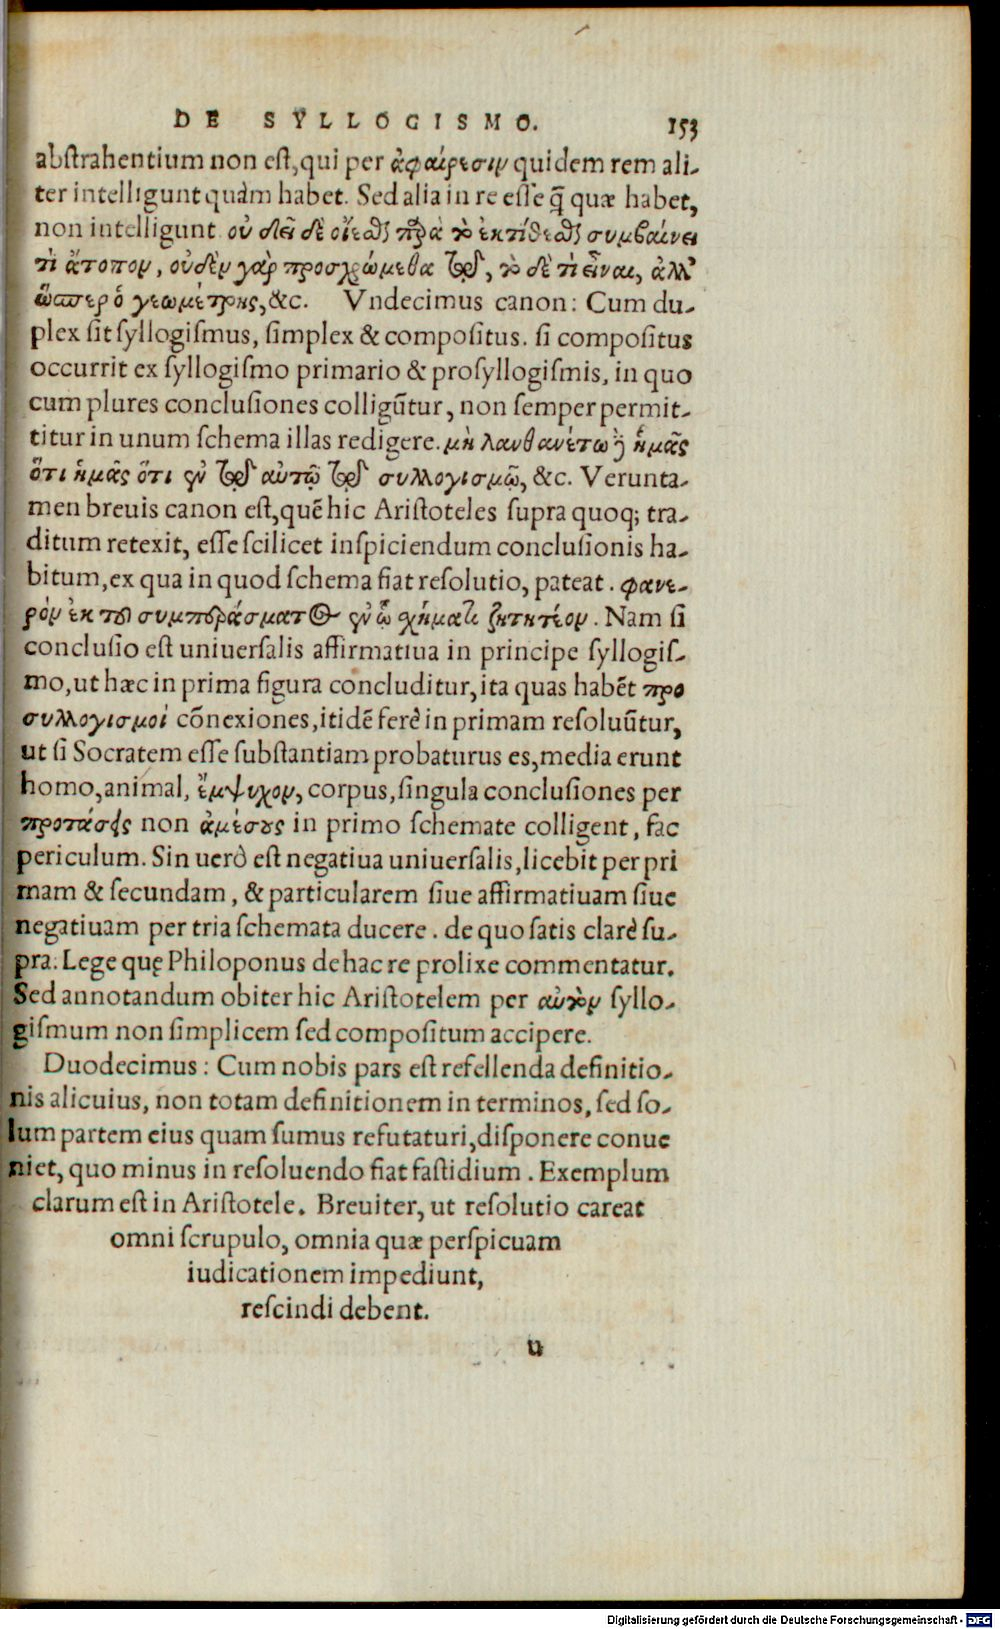 DE SYLLOGISMO. 153
abſtrahentium non eſt, qui per ἀφαίρεσιν quidem rem ali-
ter intelligunt quàm habet. Sed alia in re eſſe q̃ quæ habet,
non intelligunt οὐ δεῖ δὲ οἴεσθαι παρὰ τὸ ἐκτίθεσθαι συμβαίνει
τὶ ἄτοπον, οὐδὲν γὰρ προσχρώμεθα τῷ, τὸ δὲ τὶ εἶναι, ἀλλ'
ὥσπερ ὁ γεωμέτρης, &c. Vndecimus canon: Cum du-
plex ſit ſyllogiſmus, ſimplex & compoſitus. ſi compoſitus
occurrit ex ſyllogiſmo primario & proſyllogiſmis, in quo
cum plures concluſiones colligũtur, non ſemper permit-
titur in unum ſchema illas redigere. μὴ λανθανέτω ἢ ἡμᾶς
ὅτι ἡμᾶς ὅτι ἐν τῷ αὐτῷ τῷ συλλογισμῷ, &c. Verunta-
men breuis canon eſt, quẽ hic Ariſtoteles ſupra quoq; tra-
ditum retexit, eſſe ſcilicet inſpiciendum concluſionis ha-
bitum, ex qua in quod ſchema fiat reſolutio, pateat. φανε-
ρὸν ἐκ τοῦ συμπεράσματος ἐν ᾧ σχήματι ζητητέον. Nam ſi
concluſio eſt uniuerſalis affirmatiua in principe ſyllogiſ-
mo, ut hæc in prima figura concluditur, ita quas habẽt προ
συλλογισμοὶ cõnexiones, itidẽ ferè in primam reſoluũtur,
ut ſi Socratem eſſe ſubſtantiam probaturus es, media erunt
homo, animal, ἔμψυχον, corpus, ſingula concluſiones per
προτάσεις non ἀμέσους in primo ſchemate colligent, fac
periculum. Sin uerò eſt negatiua uniuerſalis, licebit per pri
mam & ſecundam, & particularem ſiue affirmatiuam ſiue
negatiuam per tria ſchemata ducere. de quo ſatis clarè ſu-
pra. Lege quę Philoponus de hac re prolixe commentatur.
Sed annotandum obiter hic Ariſtotelem per αὐτὸν ſyllo-
giſmum non ſimplicem ſed compoſitum accipere.
Duodecimus: Cum nobis pars eſt refellenda definitio-
nis alicuius, non totam definitionem in terminos, ſed ſo-
lum partem eius quam ſumus refutaturi, diſponere conue
niet, quo minus in reſoluendo fiat faſtidium. Exemplum
clarum eſt in Ariſtotele. Breuiter, ut reſolutio careat
omni ſcrupulo, omnia quæ perſpicuam
iudicationem impediunt,
reſcindi debent.
u
Digitalisierung gefördert durch die Deutsche Forschungsgemeinschaft - DFG